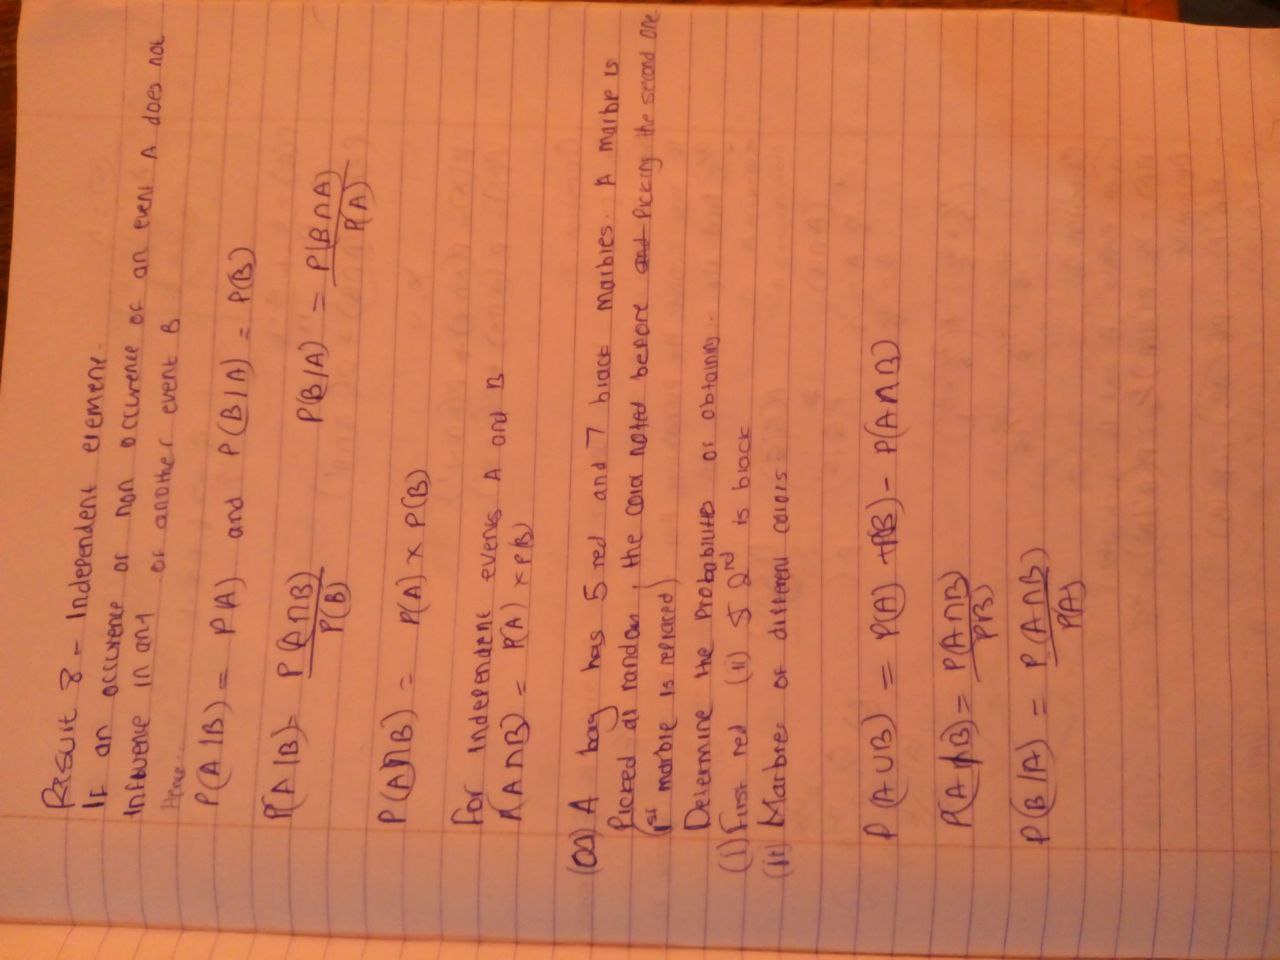 Result 8 - Independent element.
If an occurence or non occurence of an event A does not
influence in any of another event B
Hence..
P(A|B) = P(A) and P(B/A) = P(B)
P(A|B) = P(A∩B)/P(B) P(B/A) = P(B∩A)/P(A)
P(A∩B) = P(A) × P(B)
For independent events A and B
P(A∩B) = P(A) × P(B)
(Qa) A bag has 5 red and 7 black marbles. A marble is
Picked at random, the color noted before and picking the second one
(1st marble is replaced)
Determine the probabilities of obtaining.
(i) First red (ii) 2nd is black
(ii) Marbles of different colors
P(A∪B) = P(A) + P(B) - P(A∩B)
P(A/B) = P(A∩B)/P(B)
P(B/A) = P(A∩B)/P(A)